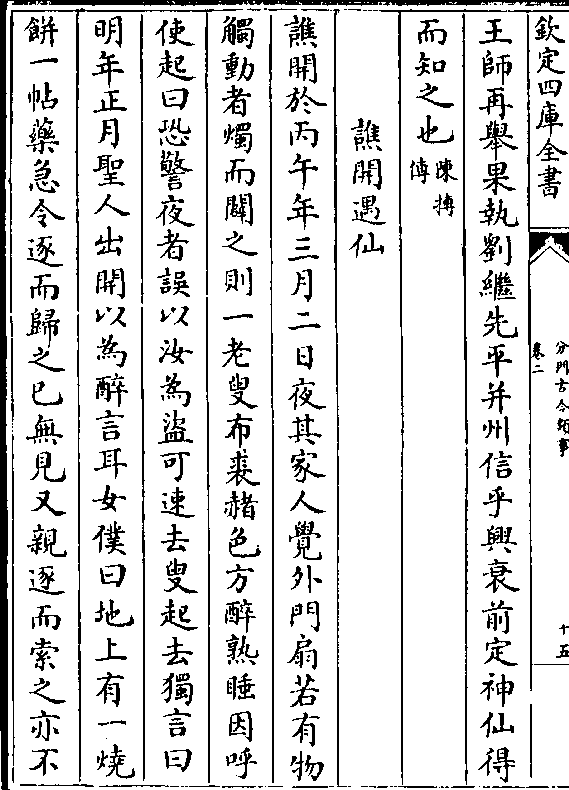 欽定四庫全書
分門古今類事
卷二
十五
王師再舉果執劉繼先平并州信乎興衰前定神仙得
而知之也陳摶傳
譙開遇仙
譙開於丙午年三月二日夜其家人覺外門扇若有物
觸動者燭而闢之則一老叟布裘赭色方醉熟睡因呼
使起曰恐警夜者誤以汝為盜可速去叟起去獨言曰
明年正月聖人出開以為醉言耳女僕曰地上有一燒
餅一帖藥急令逐而歸之已無見又親逐而索之亦不